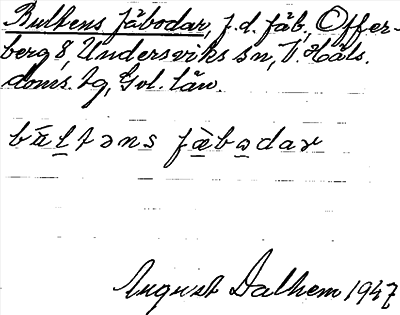 Bulkens fäbodar, f.d. fäb., Offer-
berg 8, Undersviks sn, V. Häls.
doms. tg, Gvl. län.
fä̀bodar
August Dalhem 1937